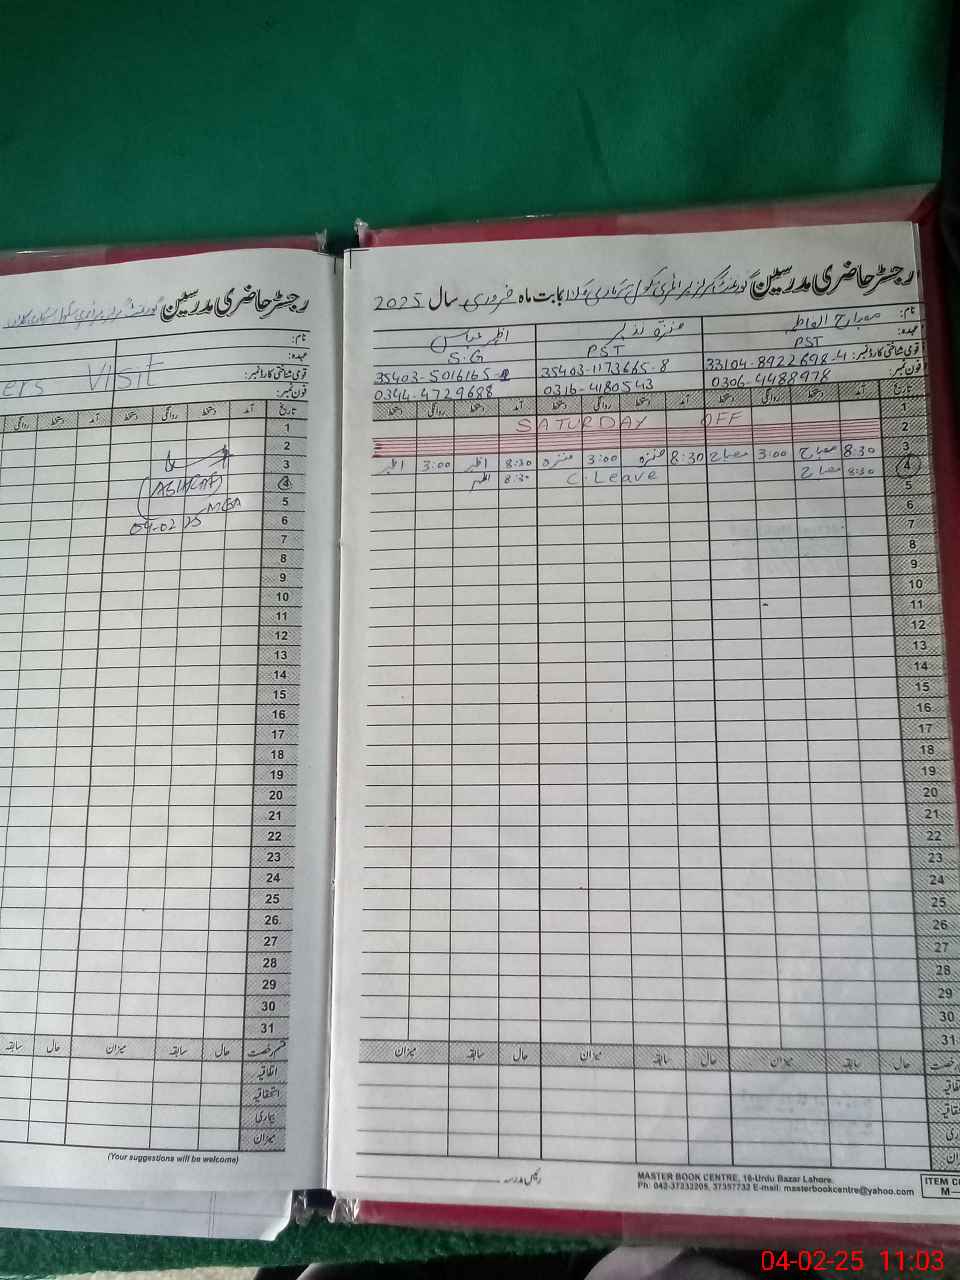 رجسٹر حاضری مدرسین
نام:
عہدہ:
قومی شناختی کارڈ نمبر:
فون نمبر:
ers Visit
تاریخ آمد دستخط روانگی دستخط آمد دستخط روانگی
1
2
3
4
5
6
04-02-25 MEA
7
8
9
10
11
12
13
14
15
16
17
18
19
20
21
22
23
24
25
26
27
28
29
30
31
قسم رخصت حال سابقہ میزان حال سابقہ
اتفاقیہ
استحقاقیہ
بیماری
میزان
(Your suggestions will be welcome)
رجسٹر حاضری مدرسین گورنمنٹ بابت ماہ فروری سال 2025
نام: اظہر عباس
عہدہ: PST PST S.G
قومی شناختی کارڈ نمبر: 33104-8922698-4 35403-1173665-8 35403-5016165-
فون نمبر: 0306-4488978 0316-4180543 0344-4729688
تاریخ آمد دستخط روانگی دستخط آمد دستخط روانگی دستخط آمد دستخط روانگی دستخط
1 SATURDAY OFF
2
3 8:30 مصباح 3:00 مصباح 8:30 منزہ 3:00 منزہ 8:30 اظہر 3:00 اظہر
4 8:30 مصباح C.Leave 8:30 اظہر
5
6
7
8
9
10
11
12
13
14
15
16
17
18
19
20
21
22
23
24
25
26
27
28
29
30
31
حال سابقہ میزان حال سابقہ میزان حال سابقہ میزان
رئیس مدرسہ
MASTER BOOK CENTRE, 16-Urdu Bazar Lahore.
Ph: 042-37232205, 37357732 E-mail: masterbookcentre@yahoo.com
ITEM C
M—
04-02-25 11:03